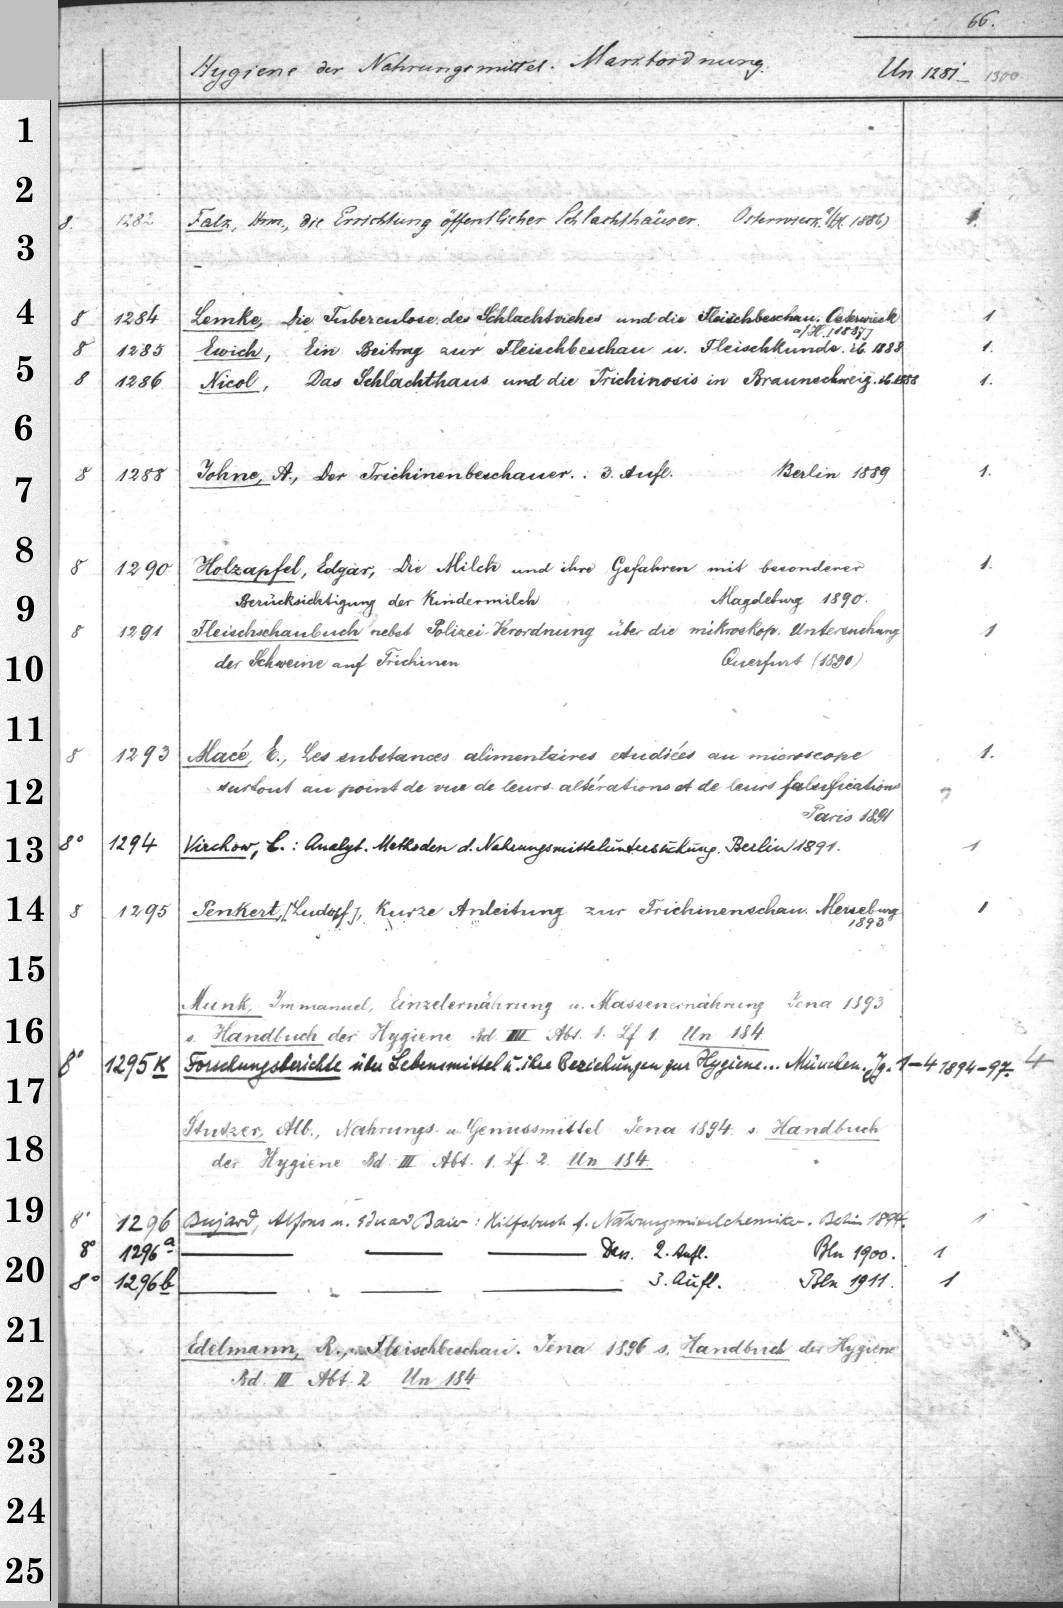 66.
Hygiene der Nahrungsmittel. Marktordnung. Un 1281- 1300
1
2
8. 1282 Falk, Hrm., die Errichtung öffentlicher Schlachthäuser. Osterwieck a/H. 1886) 1.
3
4 8 1284 Lemke, Die Tuberculose des Schlachtviehes und die Fleischbeschau. Osterwieck 1
a/H. [1887]
8 1285 Ewich, Ein Beitrag zur Fleischbeschau u. Fleischkunde. ib. 1888 1.
5 8 1286 Nicol, Das Schlachthaus und die Trichinosis in Braunschweig. ib. 1888 1.
6
7 8 1288 Johne, A., Der Trichinenbeschauer. 3. Aufl. Berlin 1889 1.
8 8 1290 Holzapfel, Edgar, Die Milch und ihre Gefahren mit besonderer 1.
9 Berücksichtigung der Kindermilch Magdeburg 1890.
8 1291 Fleischschaubuch nebst Polizei-Verordnung über die mikroskop. Untersuchung 1
10 der Schweine auf Trichinen Querfurt (1890)
11
8 1293 Macé, E., Les substances alimentaires etudiées au microscope 1.
12 surtout au point de vue de leurs altérations et de leurs falsifications
Paris 1891
13 8° 1294 Virchow, C.: Analyt. Methoden d. Nahrungsmitteluntersuchung. Berlin 1891. 1
14 8 1295 Penkert, [Ludolf], Kurze Anleitung zur Trichinenschau. Merseburg 1
1893
15
Munk, Immanuel, Einzelernährung u. Massenernährung Jena 1893
16 s. Handbuch der Hygiene Bd III Abt. 1. Lf 1. Un 184
8° 1295K Forschungsberichte über Lebensmittel u. ihre Beziehungen zur Hygiene... München. Jg. 1-4 1894-97. 4
17
Stutzer, Alb., Nahrungs- u. Genussmittel Jena 1894 s. Handbuch
18 der Hygiene Bd III Abt. 1. Lf. 2. Un 184.
19 8° 1296 Bujard, Alfons u. Eduard Baier: Hilfsbuch f. Nahrungsmittelchemiker. Berlin 1894. 1
8° 1296a Dass. 2. Aufl. Bln 1900. 1
20 8° 1296b 3. Aufl. Bln 1911. 1
21 Edelmann, R., Fleischbeschau. Jena 1896 s. Handbuch der Hygiene
22 Bd. III Abt. 2 Un 184
23
24
25